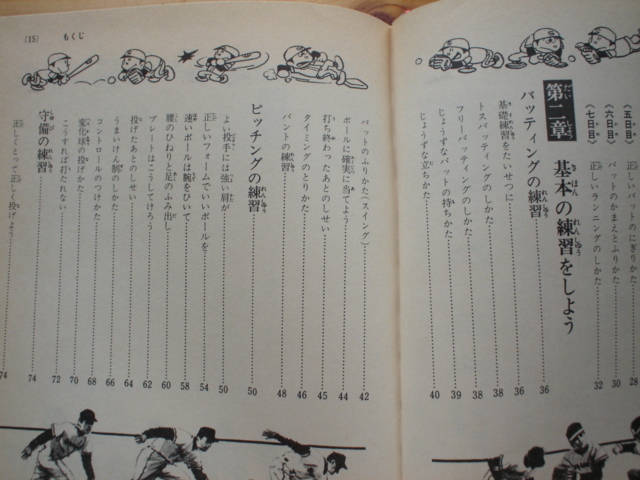 〈五日目〉 正しいバットのにぎりかた 28
〈六日目〉 バットのかまえとふりかた 30
〈七日目〉 正しいランニングのしかた 32
第二章 基本の練習をしよう
バッティングの練習 36
基礎練習をたいせつに 36
トスバッティングのしかた 38
フリーバッティングのしかた 38
じょうずなバットの持ちかた 39
じょうずな立ちかた 40
(15) もくじ
バットのふりかた〈スイング〉 42
ボールに確実に当てよう 44
打ち終わったあとのしせい 45
タイミングのとりかた 46
バントの練習 48
ピッチングの練習 50
よい投手には強い肩が 50
正しいフォームでいいボールを 54
速いボールは腕をひいて 58
腰のひねりと足のふみ出し 60
プレートはこうしてけろう 62
投げたあとのしせい 64
うまいけん制のしかた 66
コントロールのつけかた 68
変化球の投げかた 70
こうすれば打たれない 72
守備の練習 74
正しくとって正しく投げよう 74